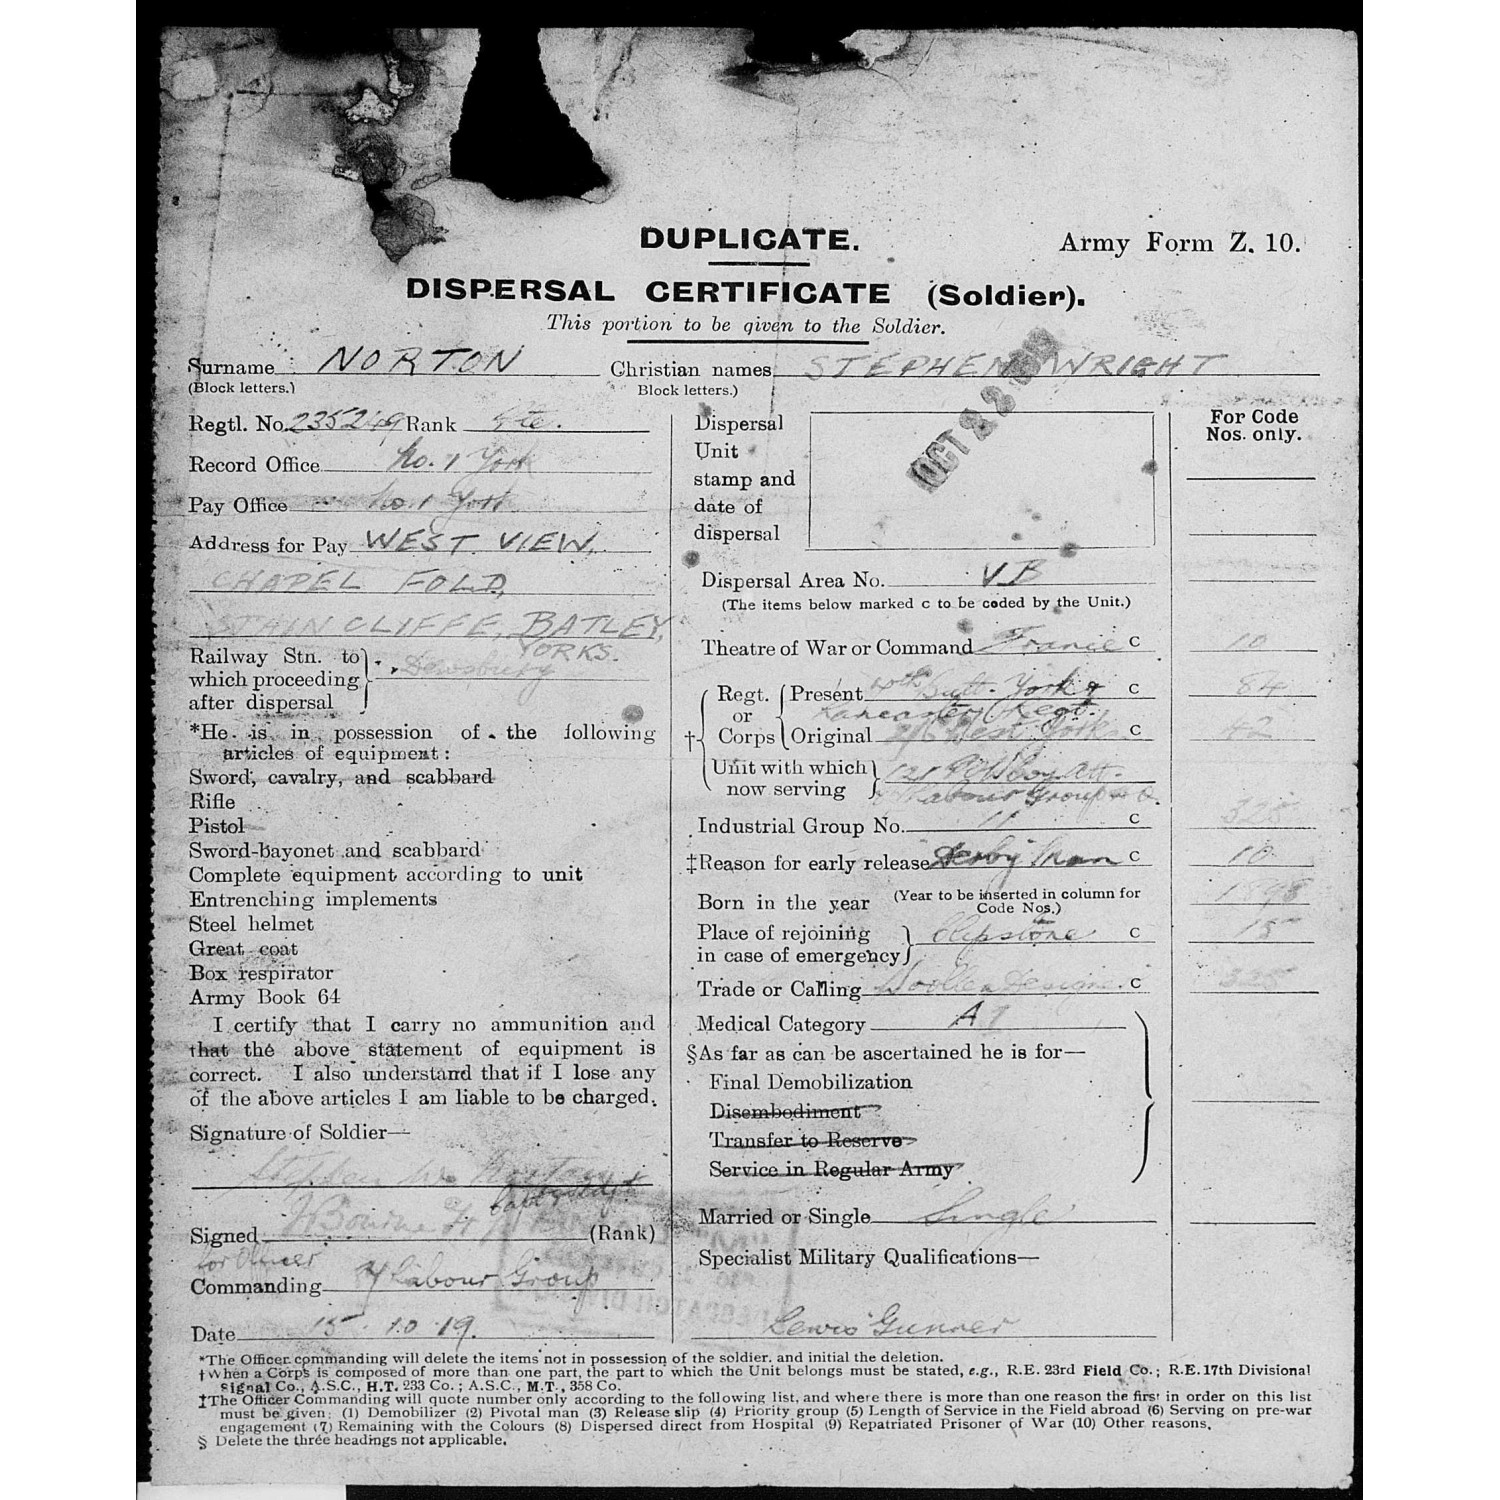 DUPLICATE.
Army Form Z. 10.
DISPERSAL CERTIFICATE (Soldier).
This portion to be given to the Soldier.
Surname NORTON Christian names STEPHEN WRIGHT
(Block letters.) Block letters.)
Regtl. No. 235249 Rank Pte.
Record Office No. 1 York
Pay Office No. 1 York
Address for Pay WEST VIEW,
CHAPEL FOLD,
STAINCLIFFE, BATLEY,
YORKS.
Railway Stn. to
which proceeding
after dispersal
Dewsbury
*He is in possession of the following
articles of equipment:
Sword, cavalry, and scabbard
Rifle
Pistol
Sword-bayonet and scabbard
Complete equipment according to unit
Entrenching implements
Steel helmet
Great coat
Box respirator
Army Book 64
I certify that I carry no ammunition and
that the above statement of equipment is
correct. I also understand that if I lose any
of the above articles I am liable to be charged.
Signature of Soldier—
Stephen W. Norton
Signed Bourne (Rank)
for Officer
Commanding Labour Group
Date 15.10.19.
Dispersal
Unit
stamp and
date of
dispersal
OCT 22 1919
For Code
Nos. only.
Dispersal Area No. VB
(The items below marked c to be coded by the Unit.)
Theatre of War or Command France c 10
†Regt. or Corps
Present Batt. York & c 84
Lancaster Regt.
Original West York c 42
Unit with which
now serving
121 P.O.W. Coy att.
Labour Group
Industrial Group No. 11 c 325
‡Reason for early release Derby Man c 10
Born in the year (Year to be inserted in column for
Code Nos.) 1898
Place of rejoining
in case of emergency
Clipstone c 15
Trade or Calling Woollen Designer c 325
Medical Category A1
§As far as can be ascertained he is for—
Final Demobilization
Disembodiment
Transfer to Reserve
Service in Regular Army
Married or Single Single
Specialist Military Qualifications—
Lewis Gunner
*The Officer commanding will delete the items not in possession of the soldier. and initial the deletion.
†When a Corps is composed of more than one part, the part to which the Unit belongs must be stated, e.g., R.E. 23rd Field Co.; R.E. 17th Divisional
Signal Co., A.S.C., H.T. 233 Co.; A.S.C., M.T., 358 Co.
‡The Officer Commanding will quote number only according to the following list, and where there is more than one reason the first in order on this list
must be given: (1) Demobilizer (2) Pivotal man (3) Release slip (4) Priority group (5) Length of Service in the Field abroad (6) Serving on pre-war
engagement (7) Remaining with the Colours (8) Dispersed direct from Hospital (9) Repatriated Prisoner of War (10) Other reasons.
§ Delete the three headings not applicable.